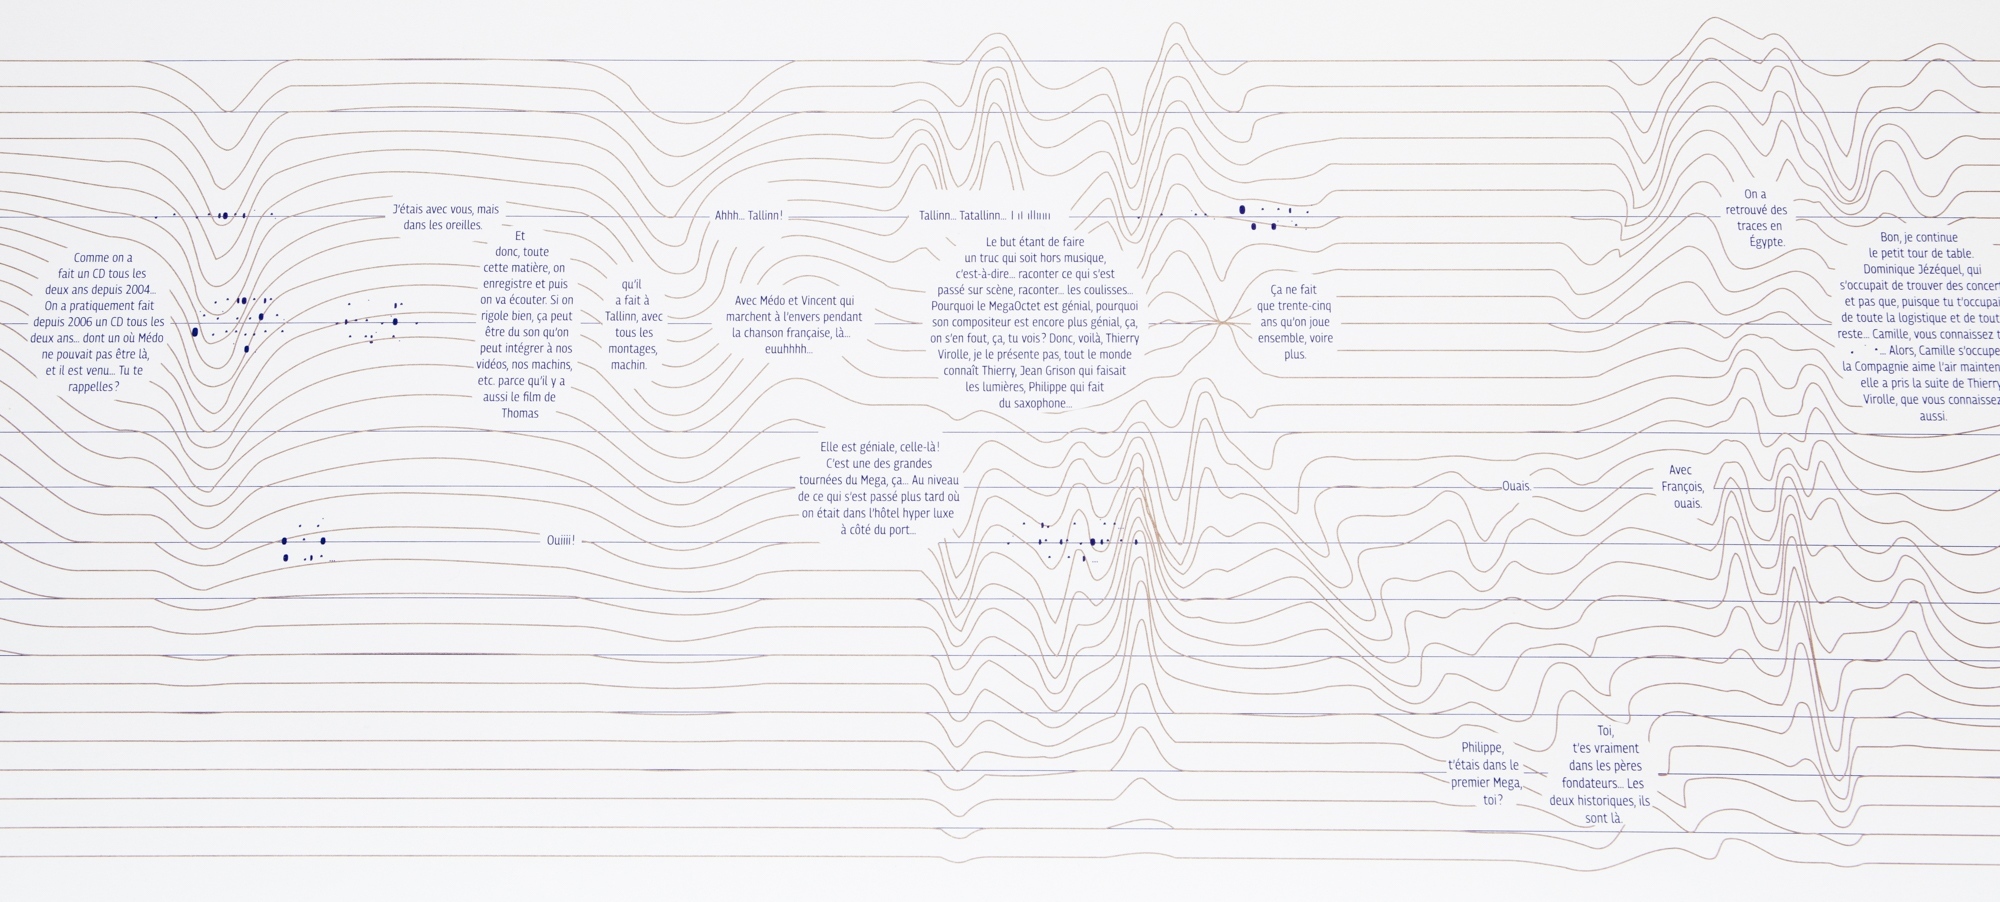 Comme on a
fait un CD tous les
deux ans depuis 2004...
On a pratiquement fait
depuis 2006 un CD tous les
deux ans... dont un où Médo
ne pouvait pas être là,
et il est venu... Tu te
rappelles ?
J'étais avec vous, mais
dans les oreilles.
Et
donc, toute
cette matière, on
enregistre et puis
on va écouter. Si on
rigole bien, ça peut
être du son qu'on
peut intégrer à nos
vidéos, nos machins,
etc. parce qu'il y a
aussi le film de
Thomas
Ouiiii !
qu'il
a fait à
Tallinn, avec
tous les
montages,
machin.
Ahhh... Tallinn !
Avec Médo et Vincent qui
marchent à l'envers pendant
la chanson française, là...
euuhhhh...
Elle est géniale, celle-là !
C'est une des grandes
tournées du Mega, ça... Au niveau
de ce qui s'est passé plus tard où
on était dans l'hôtel hyper luxe
à côté du port...
Tallinn... Tatallinn...
Le but étant de faire
un truc qui soit hors musique,
c'est-à-dire... raconter ce qui s'est
passé sur scène, raconter... les coulisses...
Pourquoi le MegaOctet est génial, pourquoi
son compositeur est encore plus génial, ça,
on s'en fout, ça, tu vois ? Donc, voilà, Thierry
Virolle, je le présente pas, tout le monde
connaît Thierry, Jean Grison qui faisait
les lumières, Philippe qui fait
du saxophone...
Ça ne fait
que trente-cinq
ans qu'on joue
ensemble, voire
plus.
Philippe,
t'étais dans le
premier Mega,
toi ?
Ouais.
Toi,
t'es vraiment
dans les pères
fondateurs... Les
deux historiques, ils
sont là.
Avec
François,
ouais.
On a
retrouvé des
traces en
Égypte.
Bon, je continue
le petit tour de table.
Dominique Jézéquel, qui
s'occupait de trouver des concert
et pas que, puisque tu t'occupai
de toute la logistique et de tout
reste... Camille, vous connaissez
... Alors, Camille s'occupe
la Compagnie aime l'air mainten
elle a pris la suite de Thierry
Virolle, que vous connaissez
aussi.